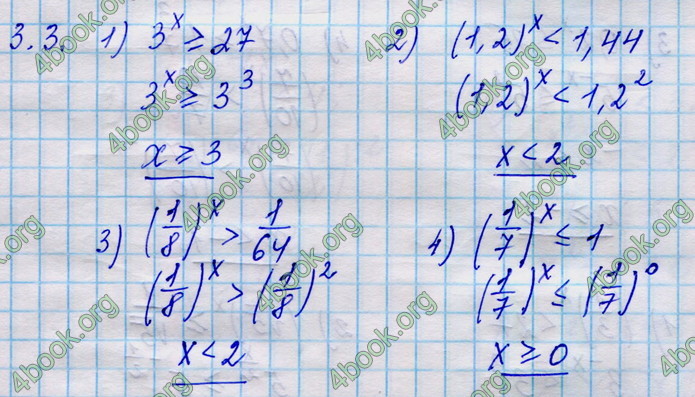 3.3. 1) 3^x ≥ 27
3^x ≥ 3^3
x ≥ 3
2) (1,2)^x < 1,44
(1,2)^x < 1,2^2
x < 2
3) (1/8)^x > 1/64
(1/8)^x > (1/8)^2
x < 2
4) (1/7)^x ≤ 1
(1/7)^x ≤ (1/7)^0
x ≥ 0
4book.org
4book.org
4book.org
4book.org
4book.org
4book.org
4book.org
4book.org
4book.org
4book.org
4book.org
4book.org